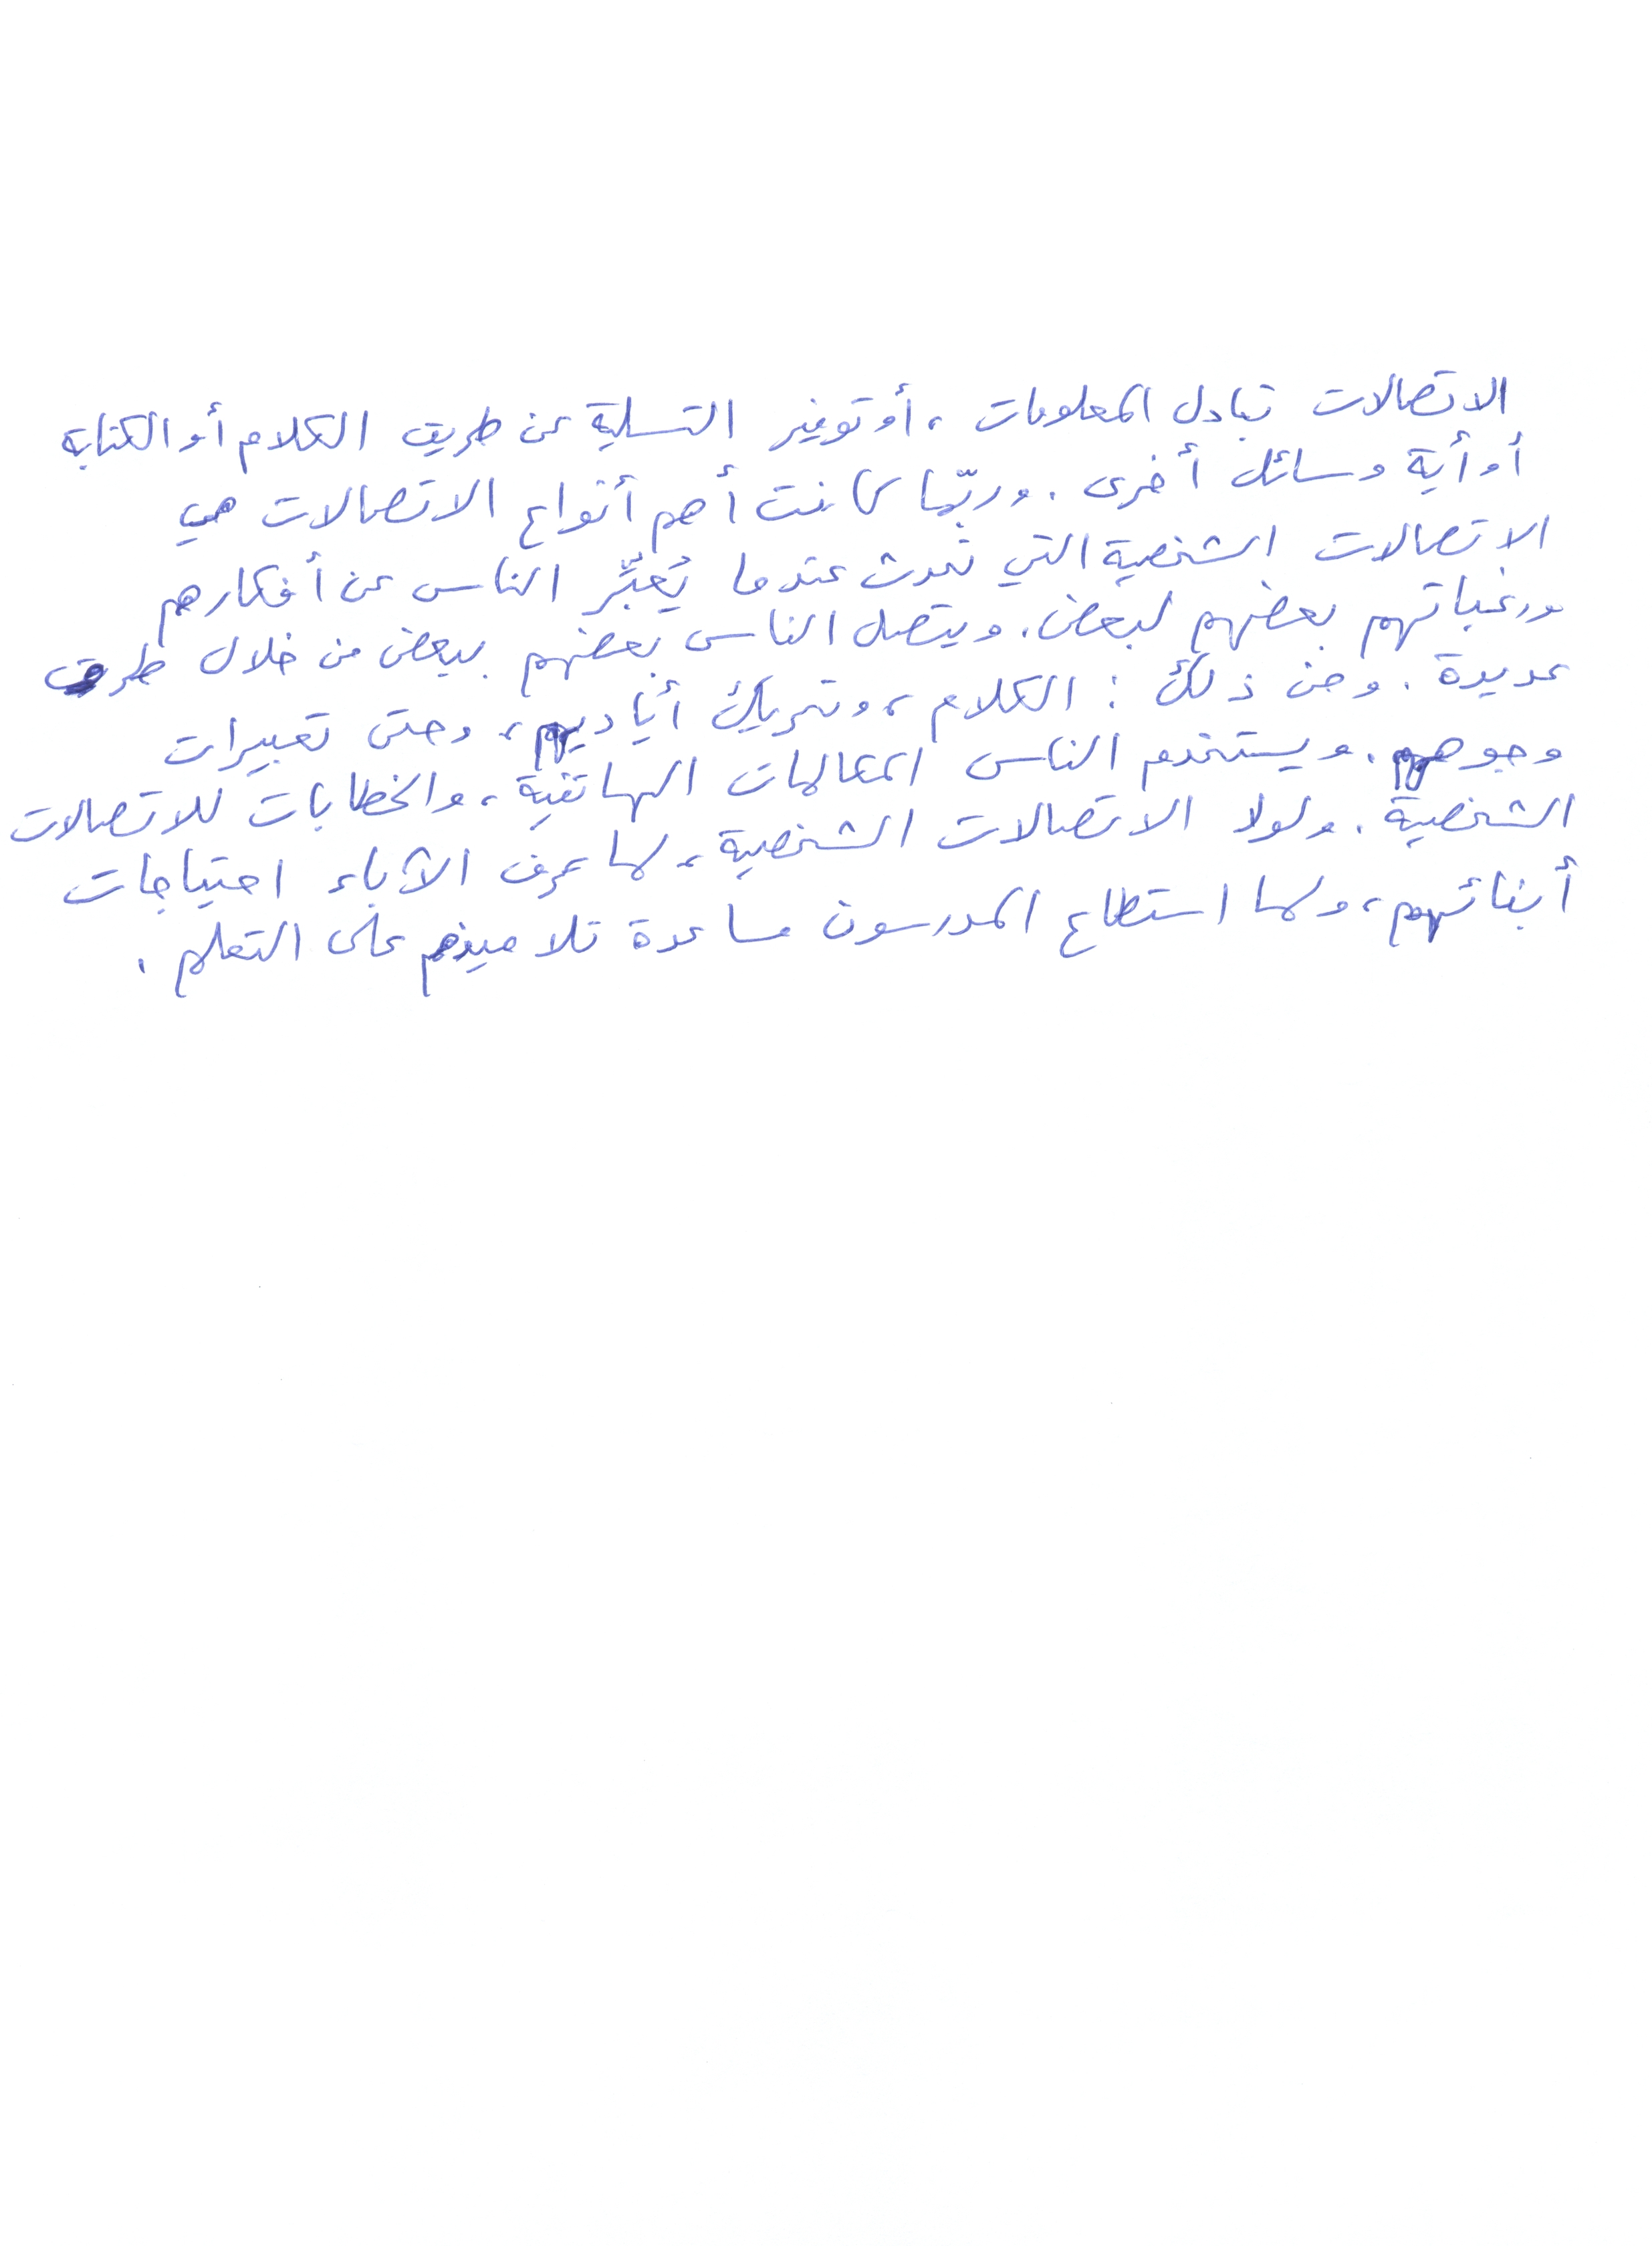 الاتصالات تبادل المعلومات، أو توفير التسلية عن طريق الكلام أو الكتابة
أو أية وسائل أخرى. وربّما كانت أهم أنواع الاتصالات هي
الاتصالات الشخصية التي تحدث عندما يُعبِّر الناس عن أفكارهم
ورغباتهم بعضهم لبعض. ويتصل الناس بعضهم ببعض من خلال طرق
عديدة. ومن ذلك: الكلام، وتحريك أياديهم، وحتى تعبيرات
وجوههم. ويستخدم الناس المكالمات الهاتفية، والخطابات للاتصالات
الشخصية. ولولا الاتصالات الشخصية، لما عرف الآباء احتياجات
أبنائهم، ولما استطاع المدرسون مساعدة تلاميذهم على التعلم.